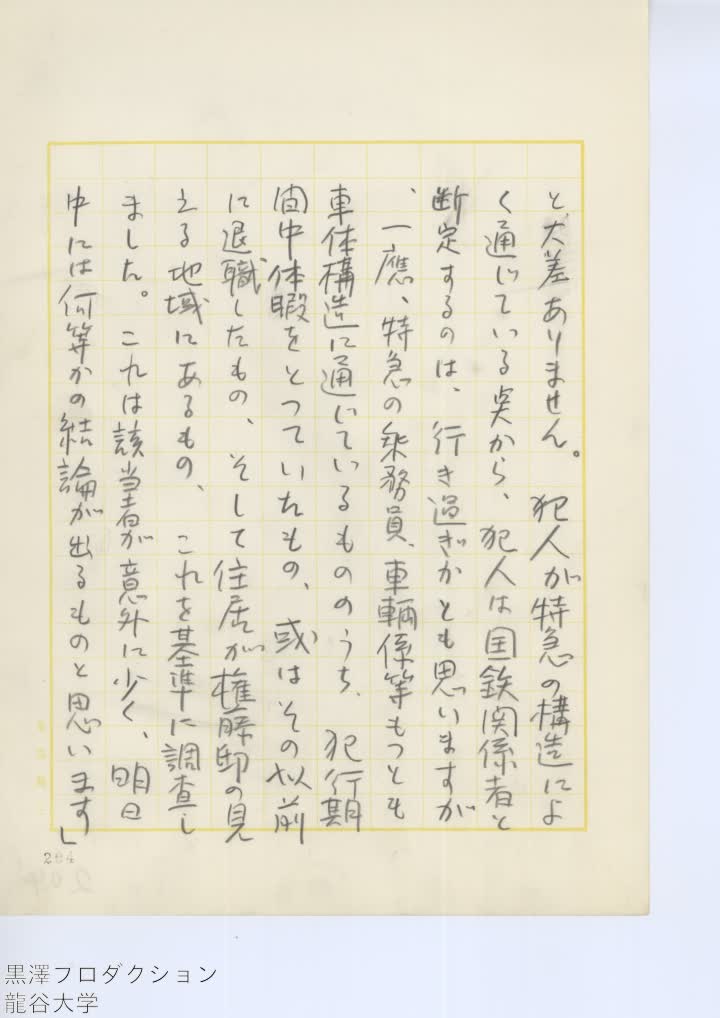 と大差ありません。犯人が特急の構造によ
く通じている点から、犯人は国鉄関係者と
断定するのは、行き過ぎかとも思いますが
、一應、特急の乗務員、車輌係等もつとも
車体構造に通じているもののうち、犯行期
間中休暇をとつていたもの、或はその以前
に退職したもの、そして住居が権藤邸の見
える地域にあるもの、これを基準に調査し
ました。これは該当者が意外に少く、明日
中には何等かの結論が出るものと思います」
204
黒澤プロダクション
龍谷大学